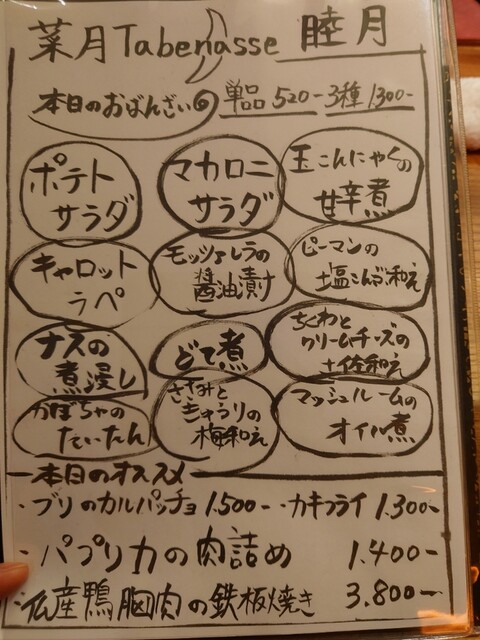 菜月Tabenasse 睦月
本日のおばんざい 単品520- 3種1300-
ポテト
サラダ
マカロニ
サラダ
玉こんにゃくの
甘辛煮
キャロット
ラペ
モッツァレラの
醤油漬け
ピーマンの
塩こんぶ和え
ナスの
煮浸し
どて煮
ちくわと
クリームチーズの
土佐和え
かぼちゃの
たいたん
ささみと
きゅうりの
梅和え
マッシュルームの
オイル煮
本日のオススメ
・ブリのカルパッチョ 1.500- ・カキフライ 1.300-
・パプリカの肉詰め 1.400-
・仏産鴨胸肉の鉄板焼き 3.800-